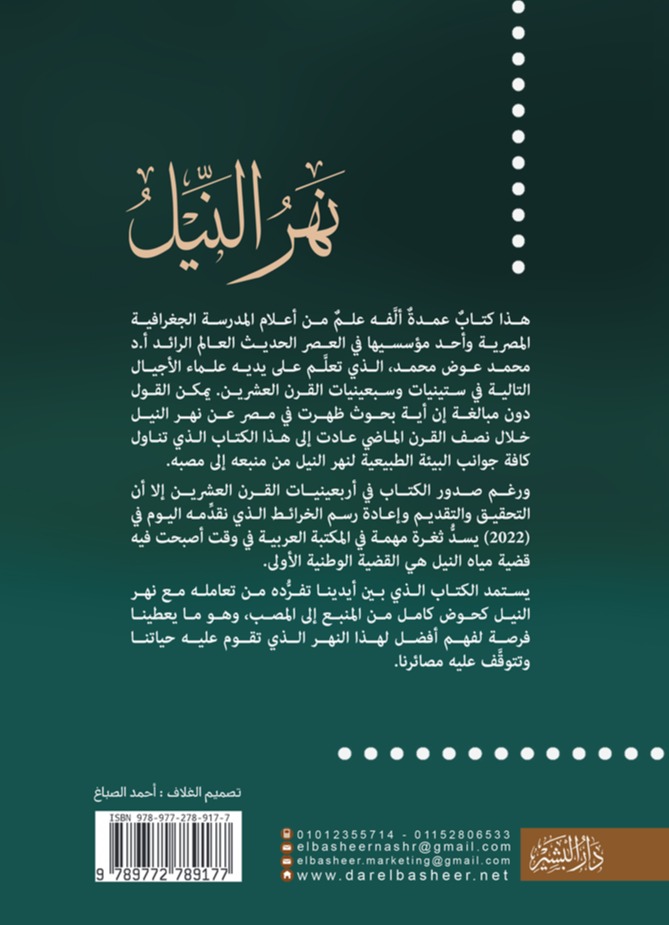 نَهرُ النِّيْلُ
هذا كتابٌ عمدةٌ ألَّفه علمٌ من أعلام المدرسة الجغرافية
المصرية وأحد مؤسسيها في العصر الحديث العالم الرائد أ.د
محمد عوض محمد، الذي تعلَّم على يديه علماء الأجيال
التالية في ستينيات وسبعينيات القرن العشرين. يمكن القول
دون مبالغة إن أية بحوث ظهرت في مصر عن نهر النيل
خلال نصف القرن الماضي عادت إلى هذا الكتاب الذي تناول
كافة جوانب البيئة الطبيعية لنهر النيل من منبعه إلى مصبه.
ورغم صدور الكتاب في أربعينيات القرن العشرين إلا أن
التحقيق والتقديم وإعادة رسم الخرائط الذي نقدِّمه اليوم في
(2022) يسدُّ ثغرة مهمة في المكتبة العربية في وقت أصبحت فيه
قضية مياه النيل هي القضية الوطنية الأولى.
يستمد الكتاب الذي بين أيدينا تفرُّده من تعامله مع نهر
النيل كحوض كامل من المنبع إلى المصب، وهو ما يعطينا
فرصة لفهم أفضل لهذا النهر الذي تقوم عليه حياتنا
وتتوقَّف عليه مصائرنا.
تصميم الغلاف : أحمد الصباغ
ISBN 978-977-278-917-7
9 789772 789177
01012355714 - 01152806533
elbasheernashr@gmail.com
elbasheer.marketing@gmail.com
www.darelbasheer.net
دَارُ البَشِيْر